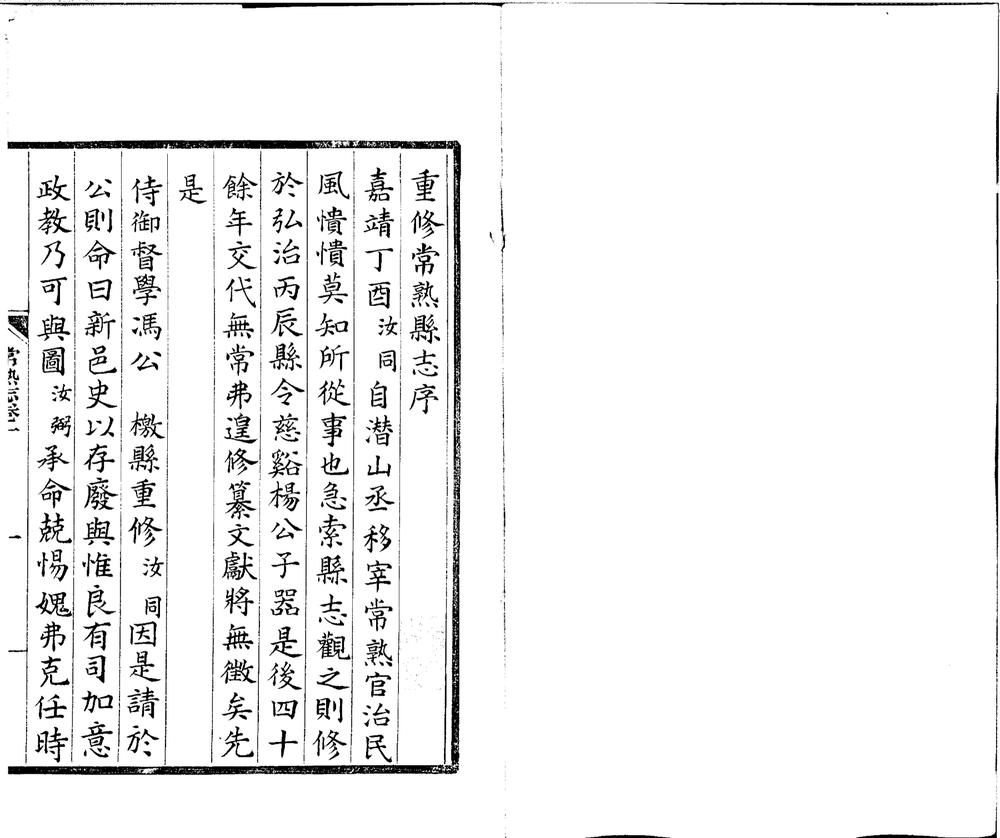 重修常熟縣志序
嘉靖丁酉汝同自潜山丞移宰常熟官治民
風憒憒莫知所從事也急索縣志觀之則修
於弘治丙辰縣令慈谿楊公子器是後四十
餘年交代無常弗遑修纂文獻將無徵矣先
是
侍御督學馮公 檄縣重修汝同因是請於
公則命曰新邑史以存廢與惟良有司加意
政教乃可與圖汝弼承命兢惕媿弗克任時
常熟志卷一
一